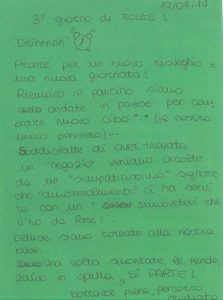 19/07/14
3° giorno di route!
"Driiinnnnn"
Pronte per un nuovo risveglio e
una nuova giornata!
Riempito le pancine siamo
andate in paese per com
prare nuovo cibo (il nostro
unico pensiero)...
Soddisfatte di aver trovato
un "negozio" veniamo accolte
da un "simpaticissimo" signore
che "amorevolmente" ci ha servi
to con un
c'ho da fare!".
Deluse siamo tornate alla nostra
base.
Una volta smontate le tende,
zaino in spalla, SI PARTE!
piene,